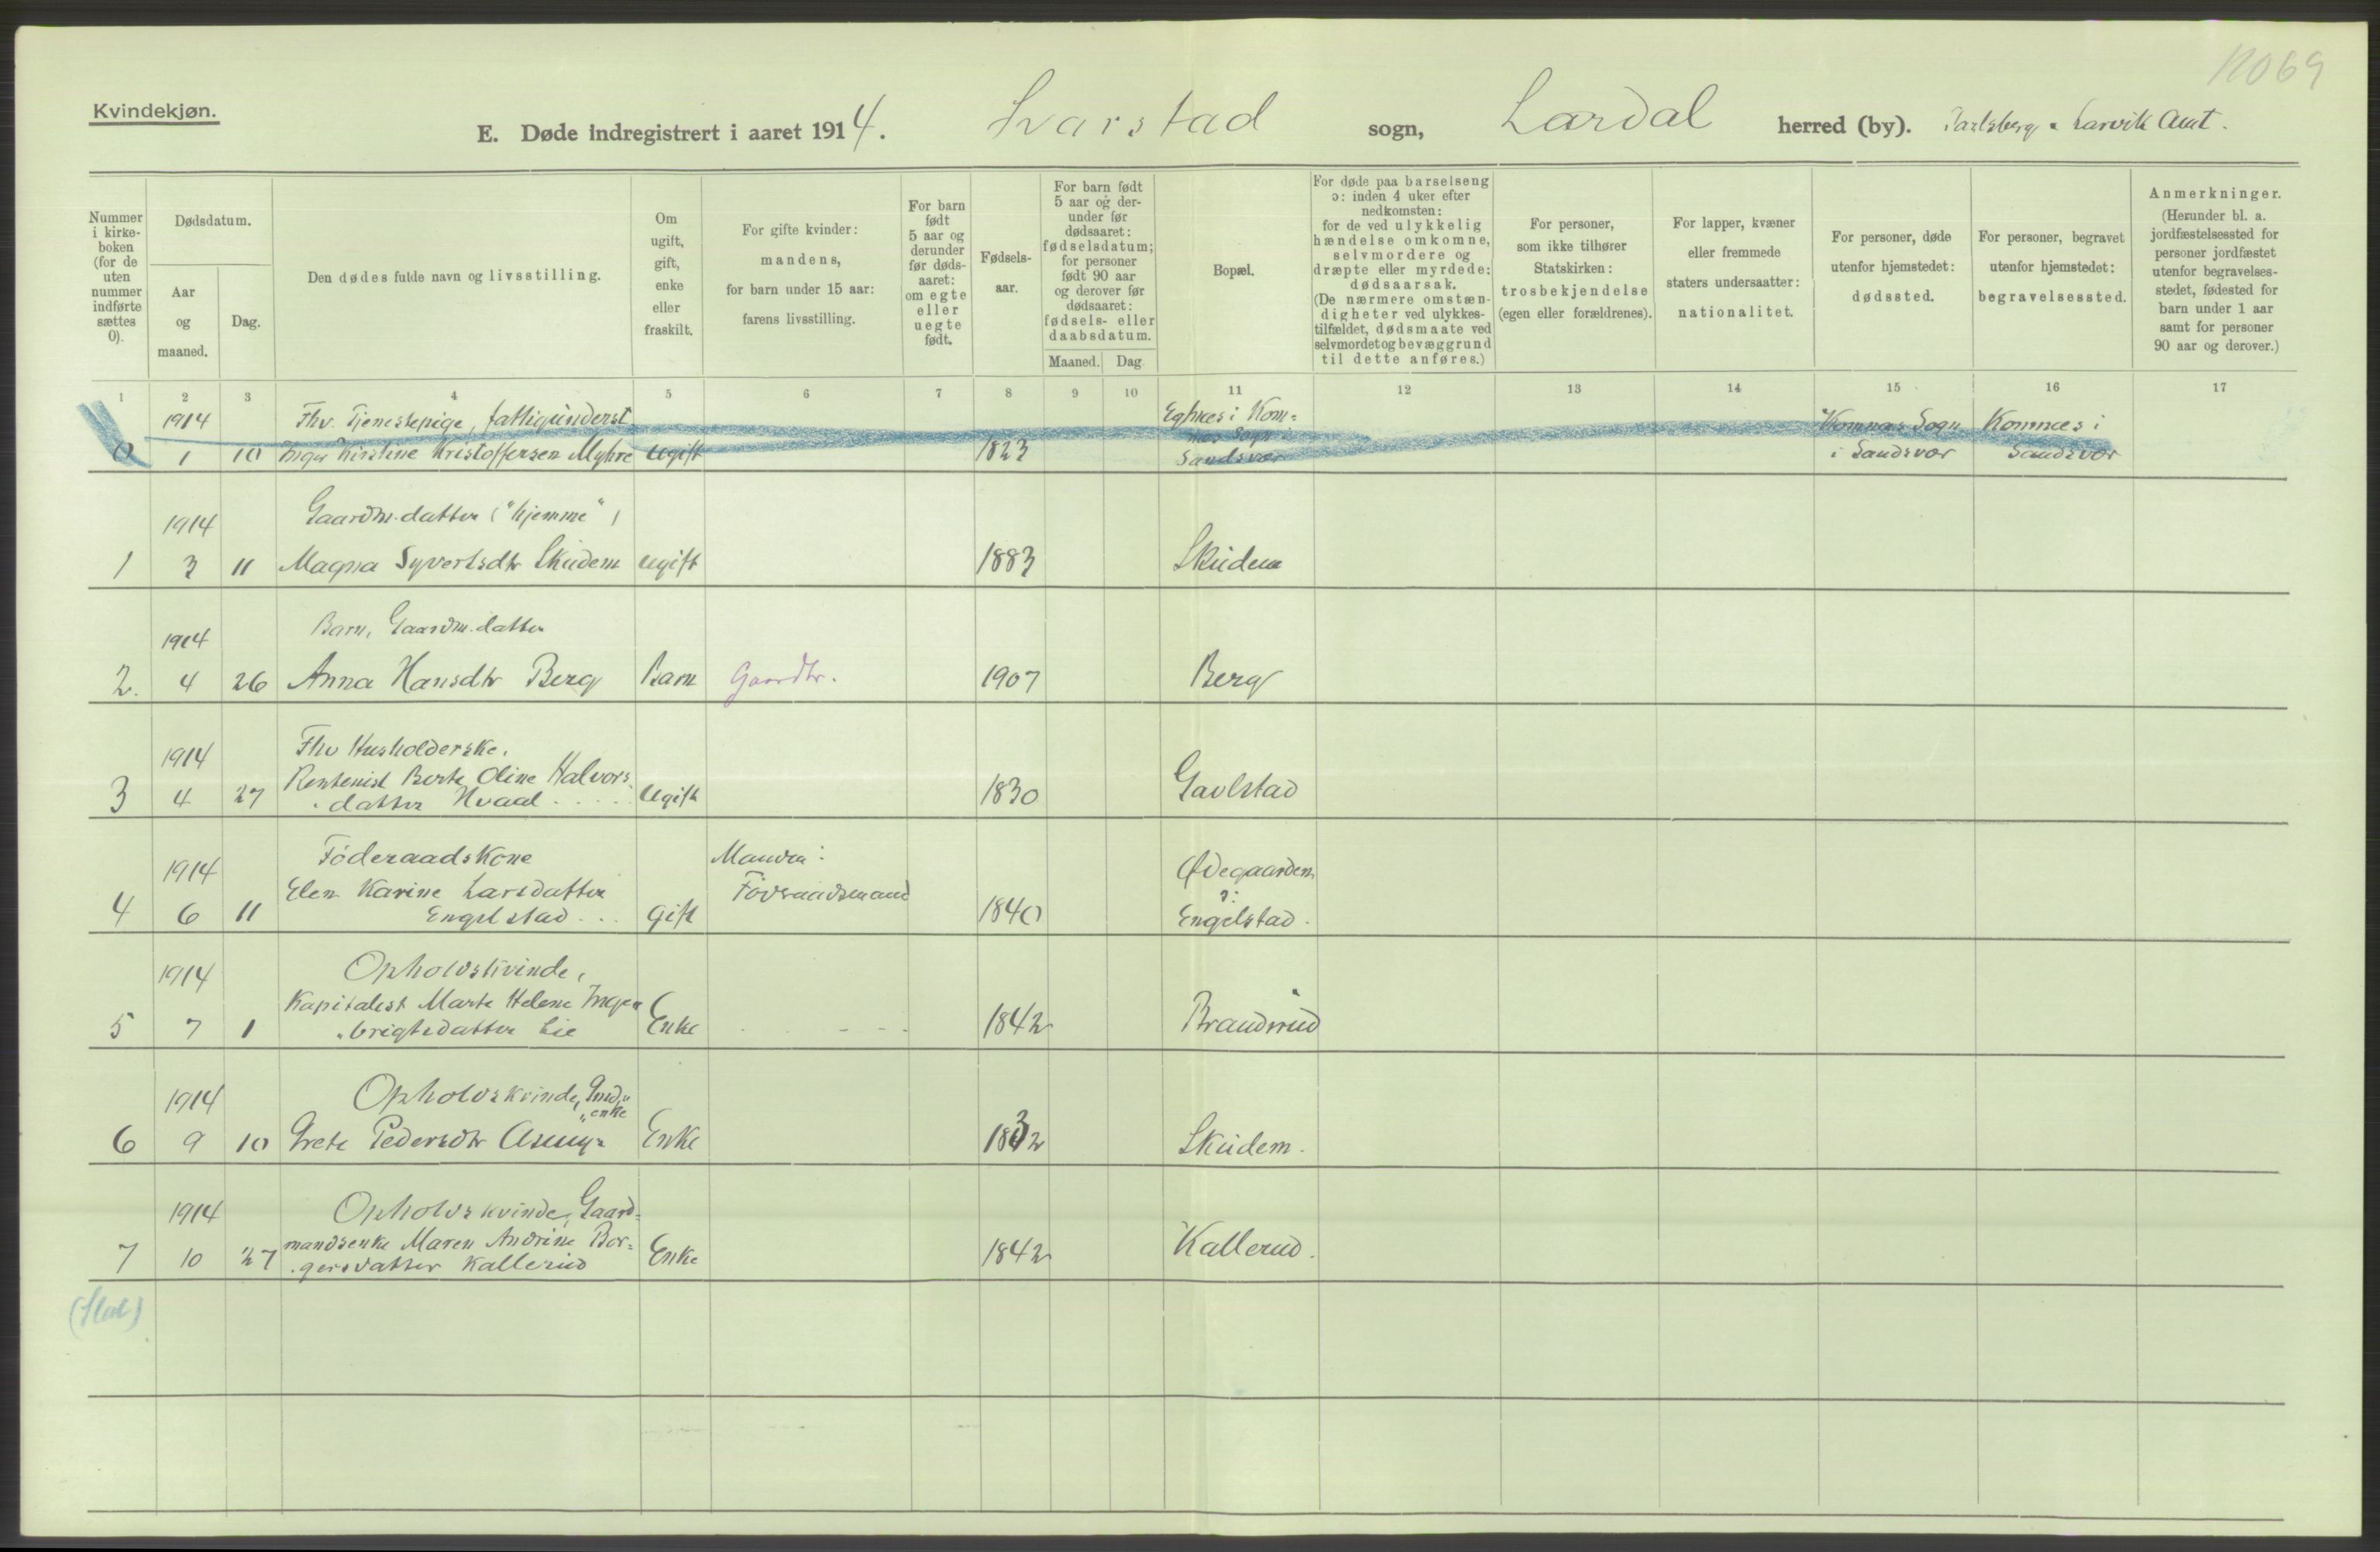 12069
Kvindekjøn.
E. Døde indregistrert i aaret 1914. Svarstad sogn, Lardal herred (by). Jarlsberg & Larvik Amt.
Nummer
i kirke-
boken
(for de
uten
nummer
indførte
sættes
0).
Dødsdatum.
Aar
og
maaned.
Dag.
Den dødes fulde navn og livsstilling.
Om
ugift,
gift,
enke
eller
fraskilt.
For gifte kvinder:
mandens,
for barn under 15 aar:
farens livsstilling.
For barn
født
5 aar og
derunder
før døds-
aaret:
om egte
eller
uegte
født.
Fødsels-
aar.
For barn født
5 aar og der-
under før
dødsaaret:
fødselsdatum;
for personer
født 90 aar
og derover før
dødsaaret:
fødsels- eller
daabsdatum.
Maaned. Dag
Bopæl.
For døde paa barselseng
ɔ: inden 4 uker efter
nedkomsten:
for de ved ulykkelig
hændelse omkomne,
selvmordere og
dræpte eller myrdede:
dødsaarsak.
(De nærmere omstæn-
digheter ved ulykkes-
tilfældet, dødsmaate ved
selvmordet og bevæggrund
til dette anføres.)
For personer,
som ikke tilhører
Statskirken:
trosbekjendelse
(egen eller forældrenes).
For lapper, kvæner
eller fremmede
staters undersaatter:
nationalitet.
For personer, døde
utenfor hjemstedet:
dødssted.
For personer, begravet
utenfor hjemstedet:
begravelsessted.
Anmerkninger.
(Herunder bl. a.
jordfæstelsessted for
personer jordfæstet
utenfor begravelses-
stedet, fødested for
barn under 1 aar
samt for personer
90 aar og derover.)
1 2 3 4 5 6 7 8 9 10 11 12 13 14 15 16 17
1914 Fhv. Tjenestepige, fattigunderst. Kom= Komnes Sogn Komnæs i
0 1 10 Inger Kirstine Kristoffersen Myhre ugift 1823 Sandsvær i Sandsvær Sandsvær
1914 Gaardm.datter ("hjemme")
1 3 11 Magna Syvertsdtr Skudem ugift 1883 Skudem
1914 Barn, Gaardm.datter
2. 4 26 Anna Hansdtr Berg Barn Gaardbr. 1907 Berg
1914 Fhv Husholderske,
Rentenist Berte Oline Halvors
3 4 27 datter Hvaal ugift 1830 Gavlstad
1914 Föderaadskone Manden: Ödegaarden
Elen Karine Larsdatter Föderaadsmand ɔ:
4 6 11 Engelstad gift 1840 Engelstad.
1914 Opholdskvinde,
Kapitalist Marte Helene Inge=
5 7 1 brigtsdatter Lie Enke 1842 Brandsrud
1914 Opholdskvinde, Grd.=
=enke
6 9 10 Grete Pedersdtr Enke 1832 Skudem.
1914 Opholdskvinde, Gaard=
mandsenke Maren Andrine Bor=
7 10 27 gersdatter Kallerud Enke 1842 Kallerud.